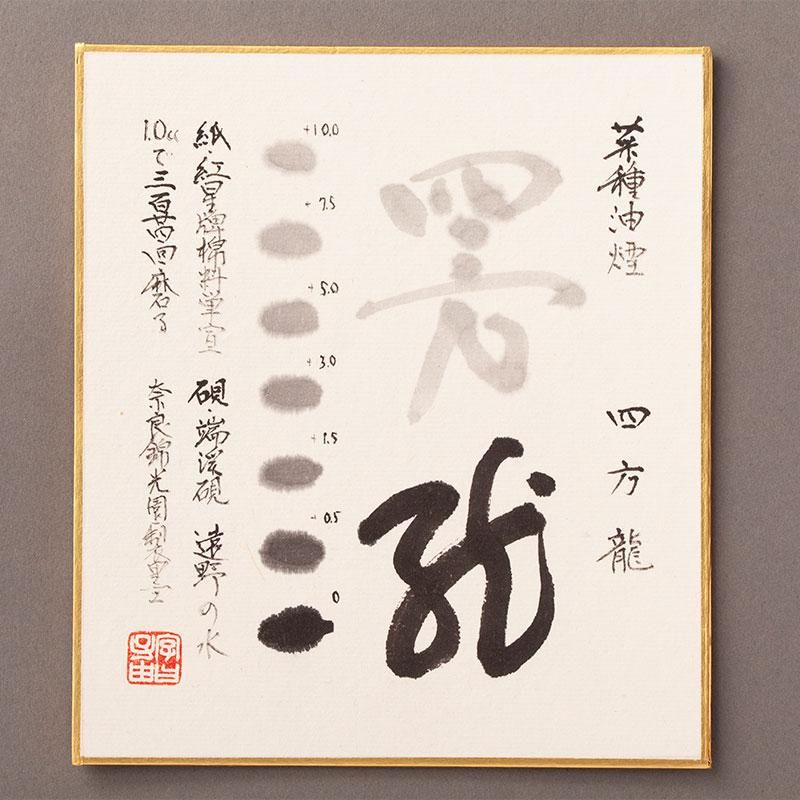 菜種油煙
四方龍
四方
龍
+10.0
+7.5
+5.0
+3.0
+1.5
+0.5
0
紙・紅星牌棉料単宣
硯・端渓硯 遠野の水
1.0ccで三百廿四回磨る
奈良錦光園製墨